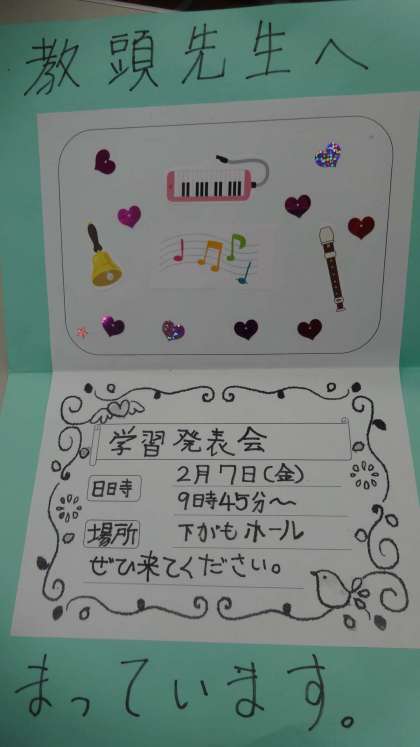 教頭先生へ
学習発表会
日時
2月7日(金)
9時45分〜
場所
下がもホール
ぜひ来てください。
まっています。